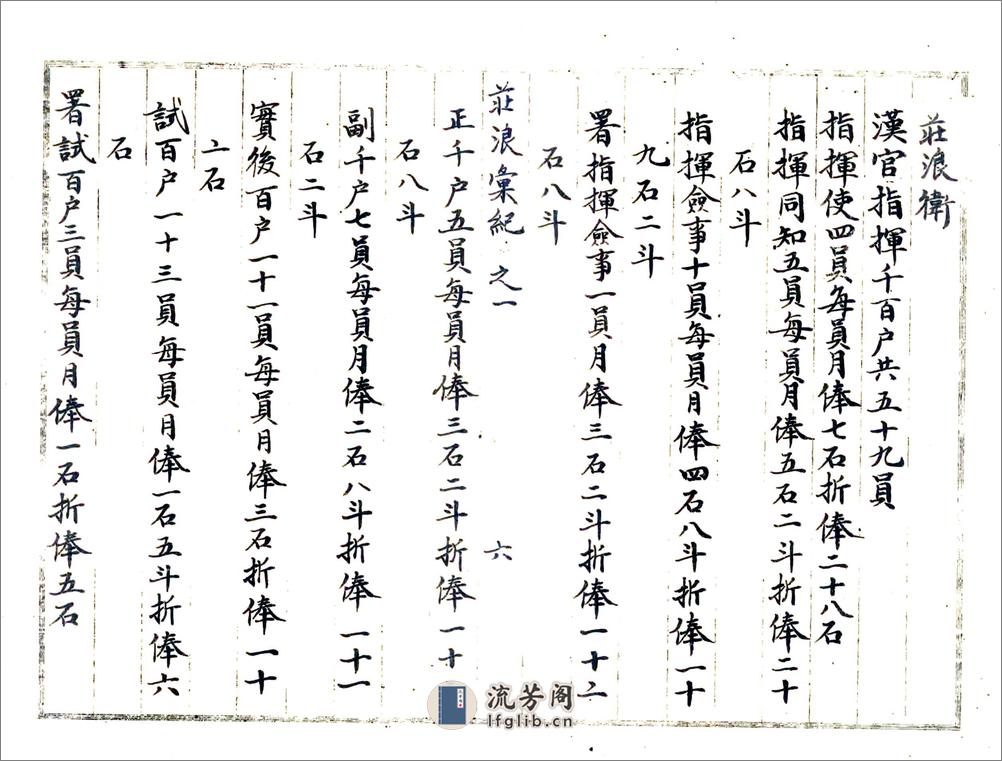 莊浪衛
漢官指揮千百户共五十九員
指揮使四員每員月俸七石折俸二十八石
指揮同知五員每員月俸五石二斗折俸二十
石八斗
指揮僉事十員每員月俸四石八斗折俸一十
九石二斗
署指揮僉事一員月俸三石二斗折俸一十二
石八斗
莊浪彙紀 之一 六
正千户五員每員月俸三石二斗折俸一十
石八斗
副千户七員每員月俸二石八斗折俸一十一
石二斗
實後百户一十一員每員月俸三石折俸一十
二石
試百户一十三員每員月俸一石五斗折俸六
石
署試百户三員每員月俸一石折俸五石
流芳阁
lfglib.cn